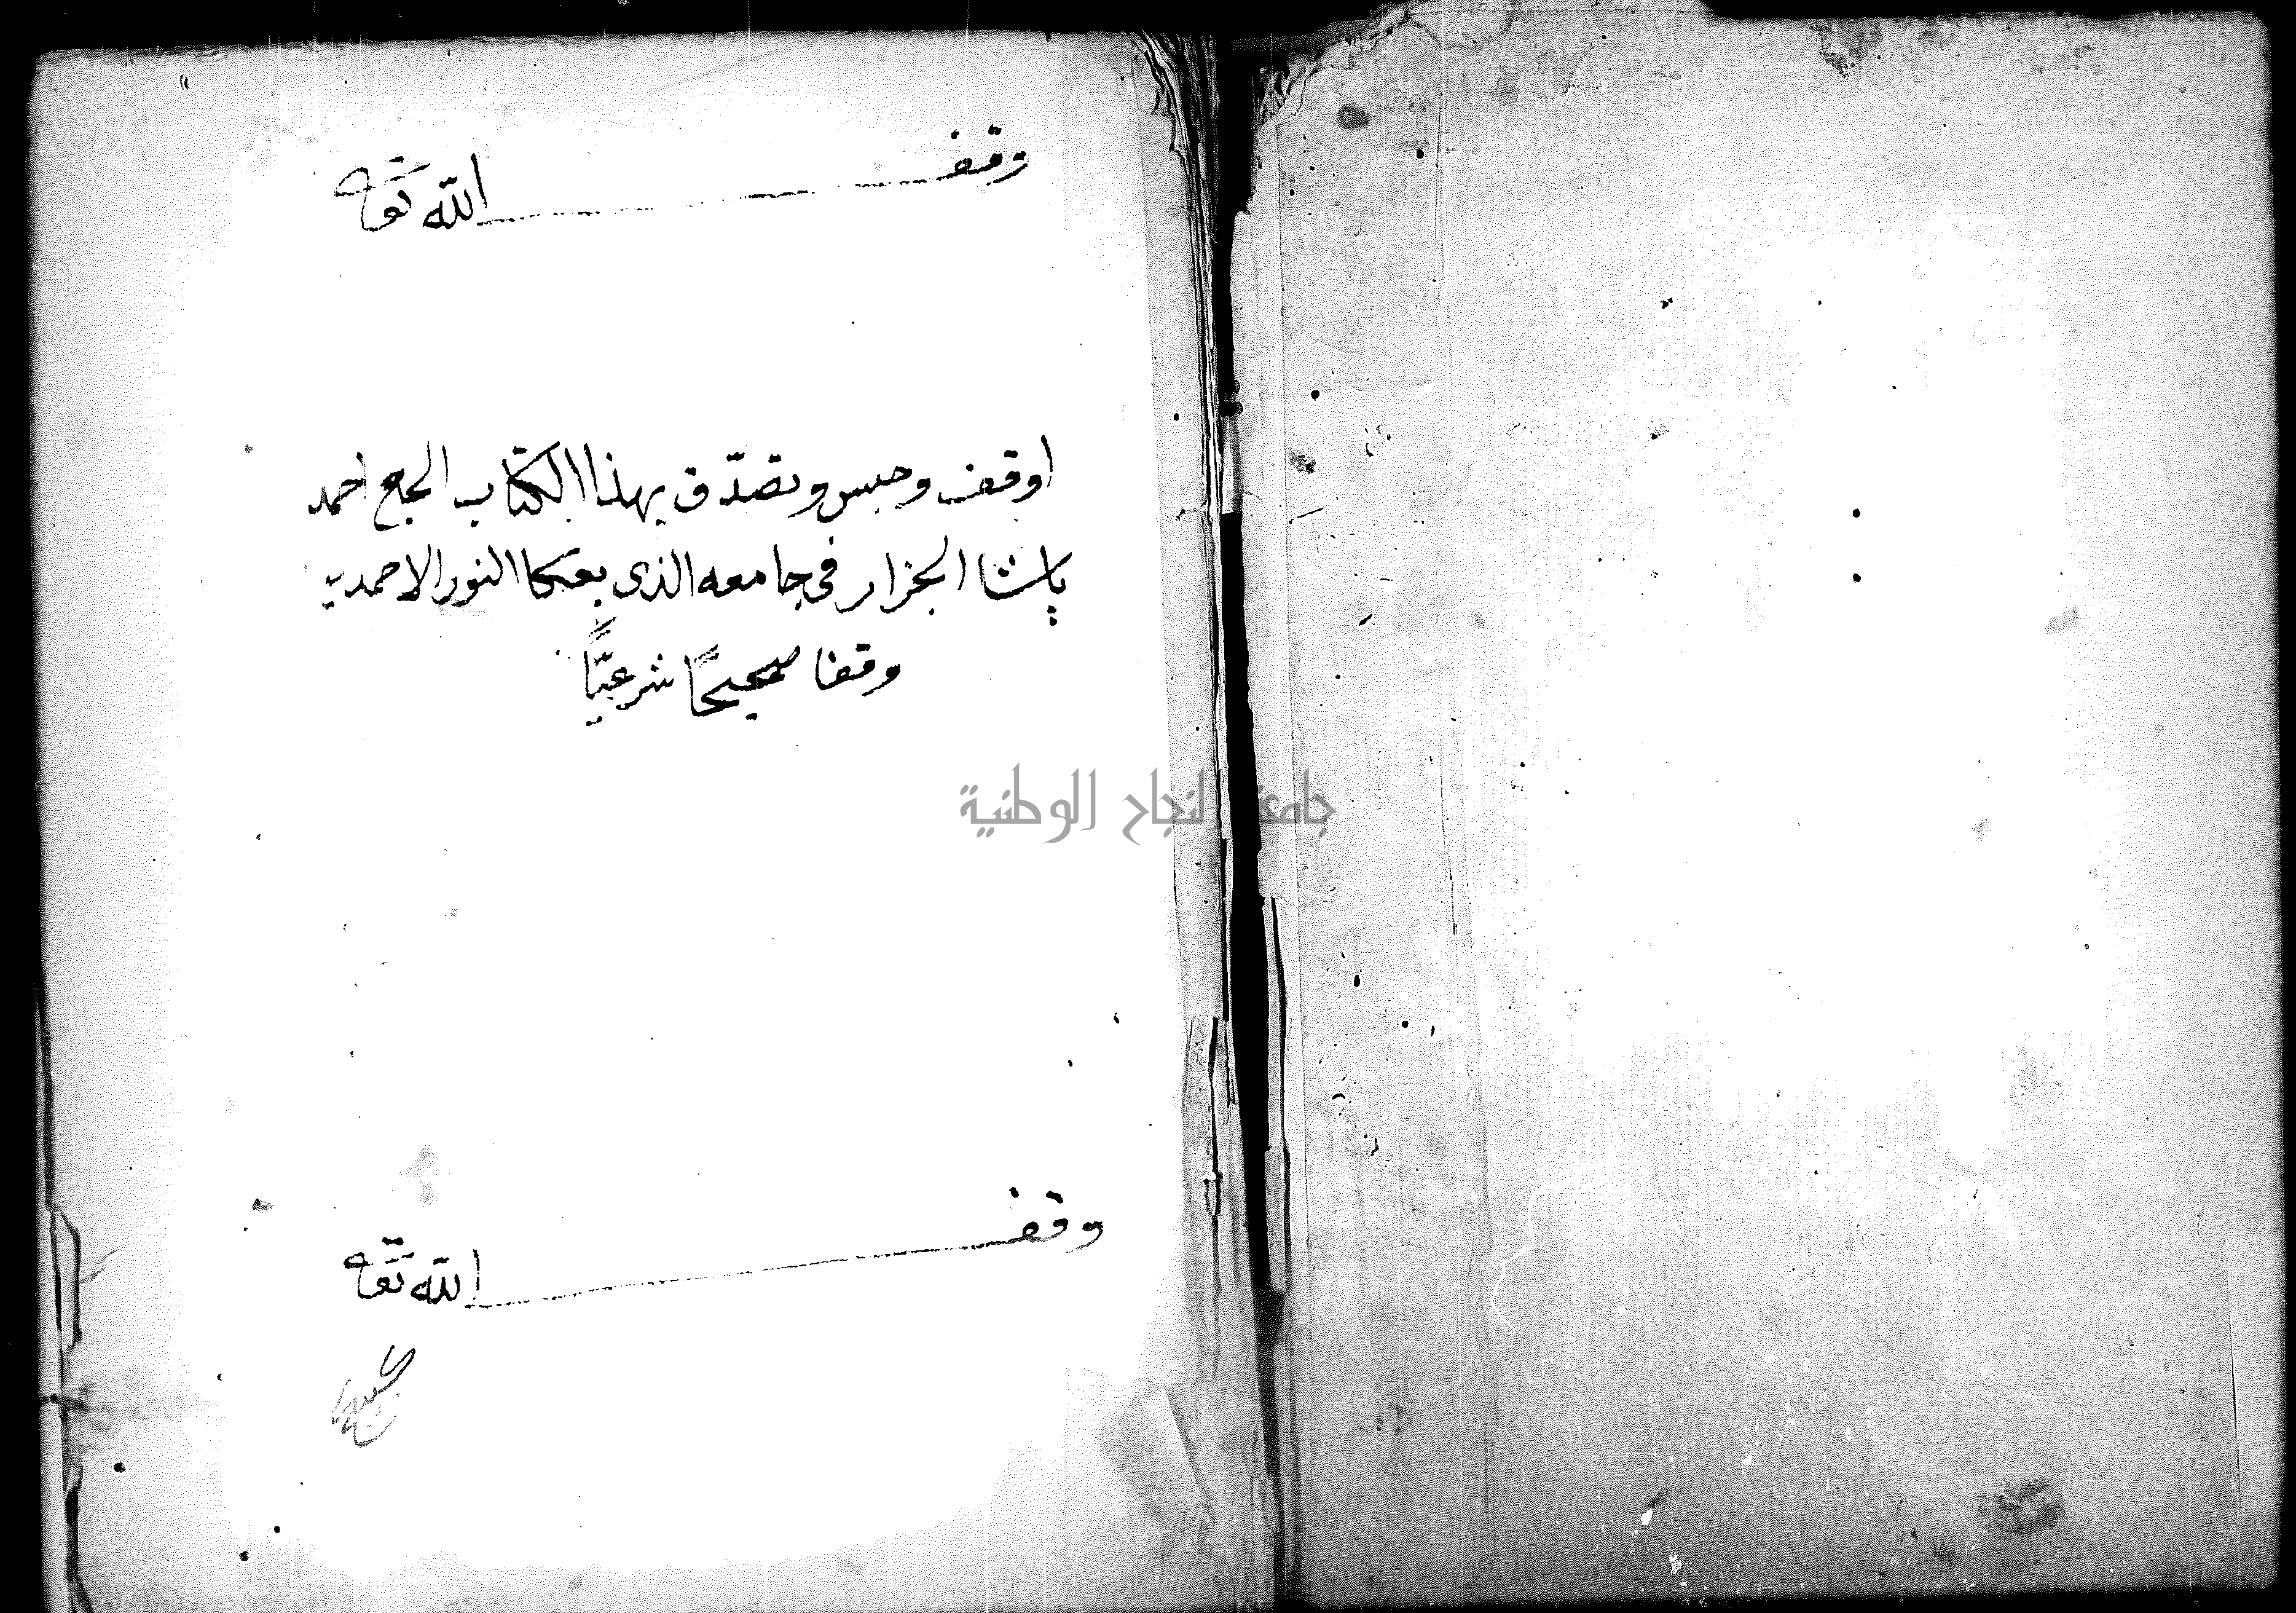 وقف الله تعا
اوقف وحبس وتصدّق بهذا الكتاب الحاج احمد
باشا الجزار فى جامعه الذى بعكا النور الاحمديه
وقفا صحيحًا شرعيًّا
جامعة النجاح الوطنية
وقف الله تعا